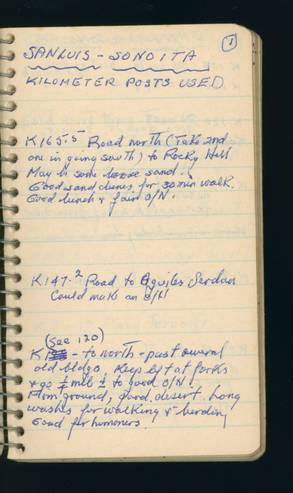 1
SANLUIS - SONOITA
KILOMETER POSTS USED
K165.5 Road north (Take 2nd
one in going south) to Rocky Hill
May be some loose sand.
Good sand dunes for 30 min walk.
Good lunch & fair O/N.
K147.2 Road to Aquiles Serdan
Could make an O/N
(see 120)
- to north - past several
old bldgs. Keep left at forks
& go ½ mile ± to good O/N.
Firm ground, good desert. Long
washes for walking & birding
Good for hummers.